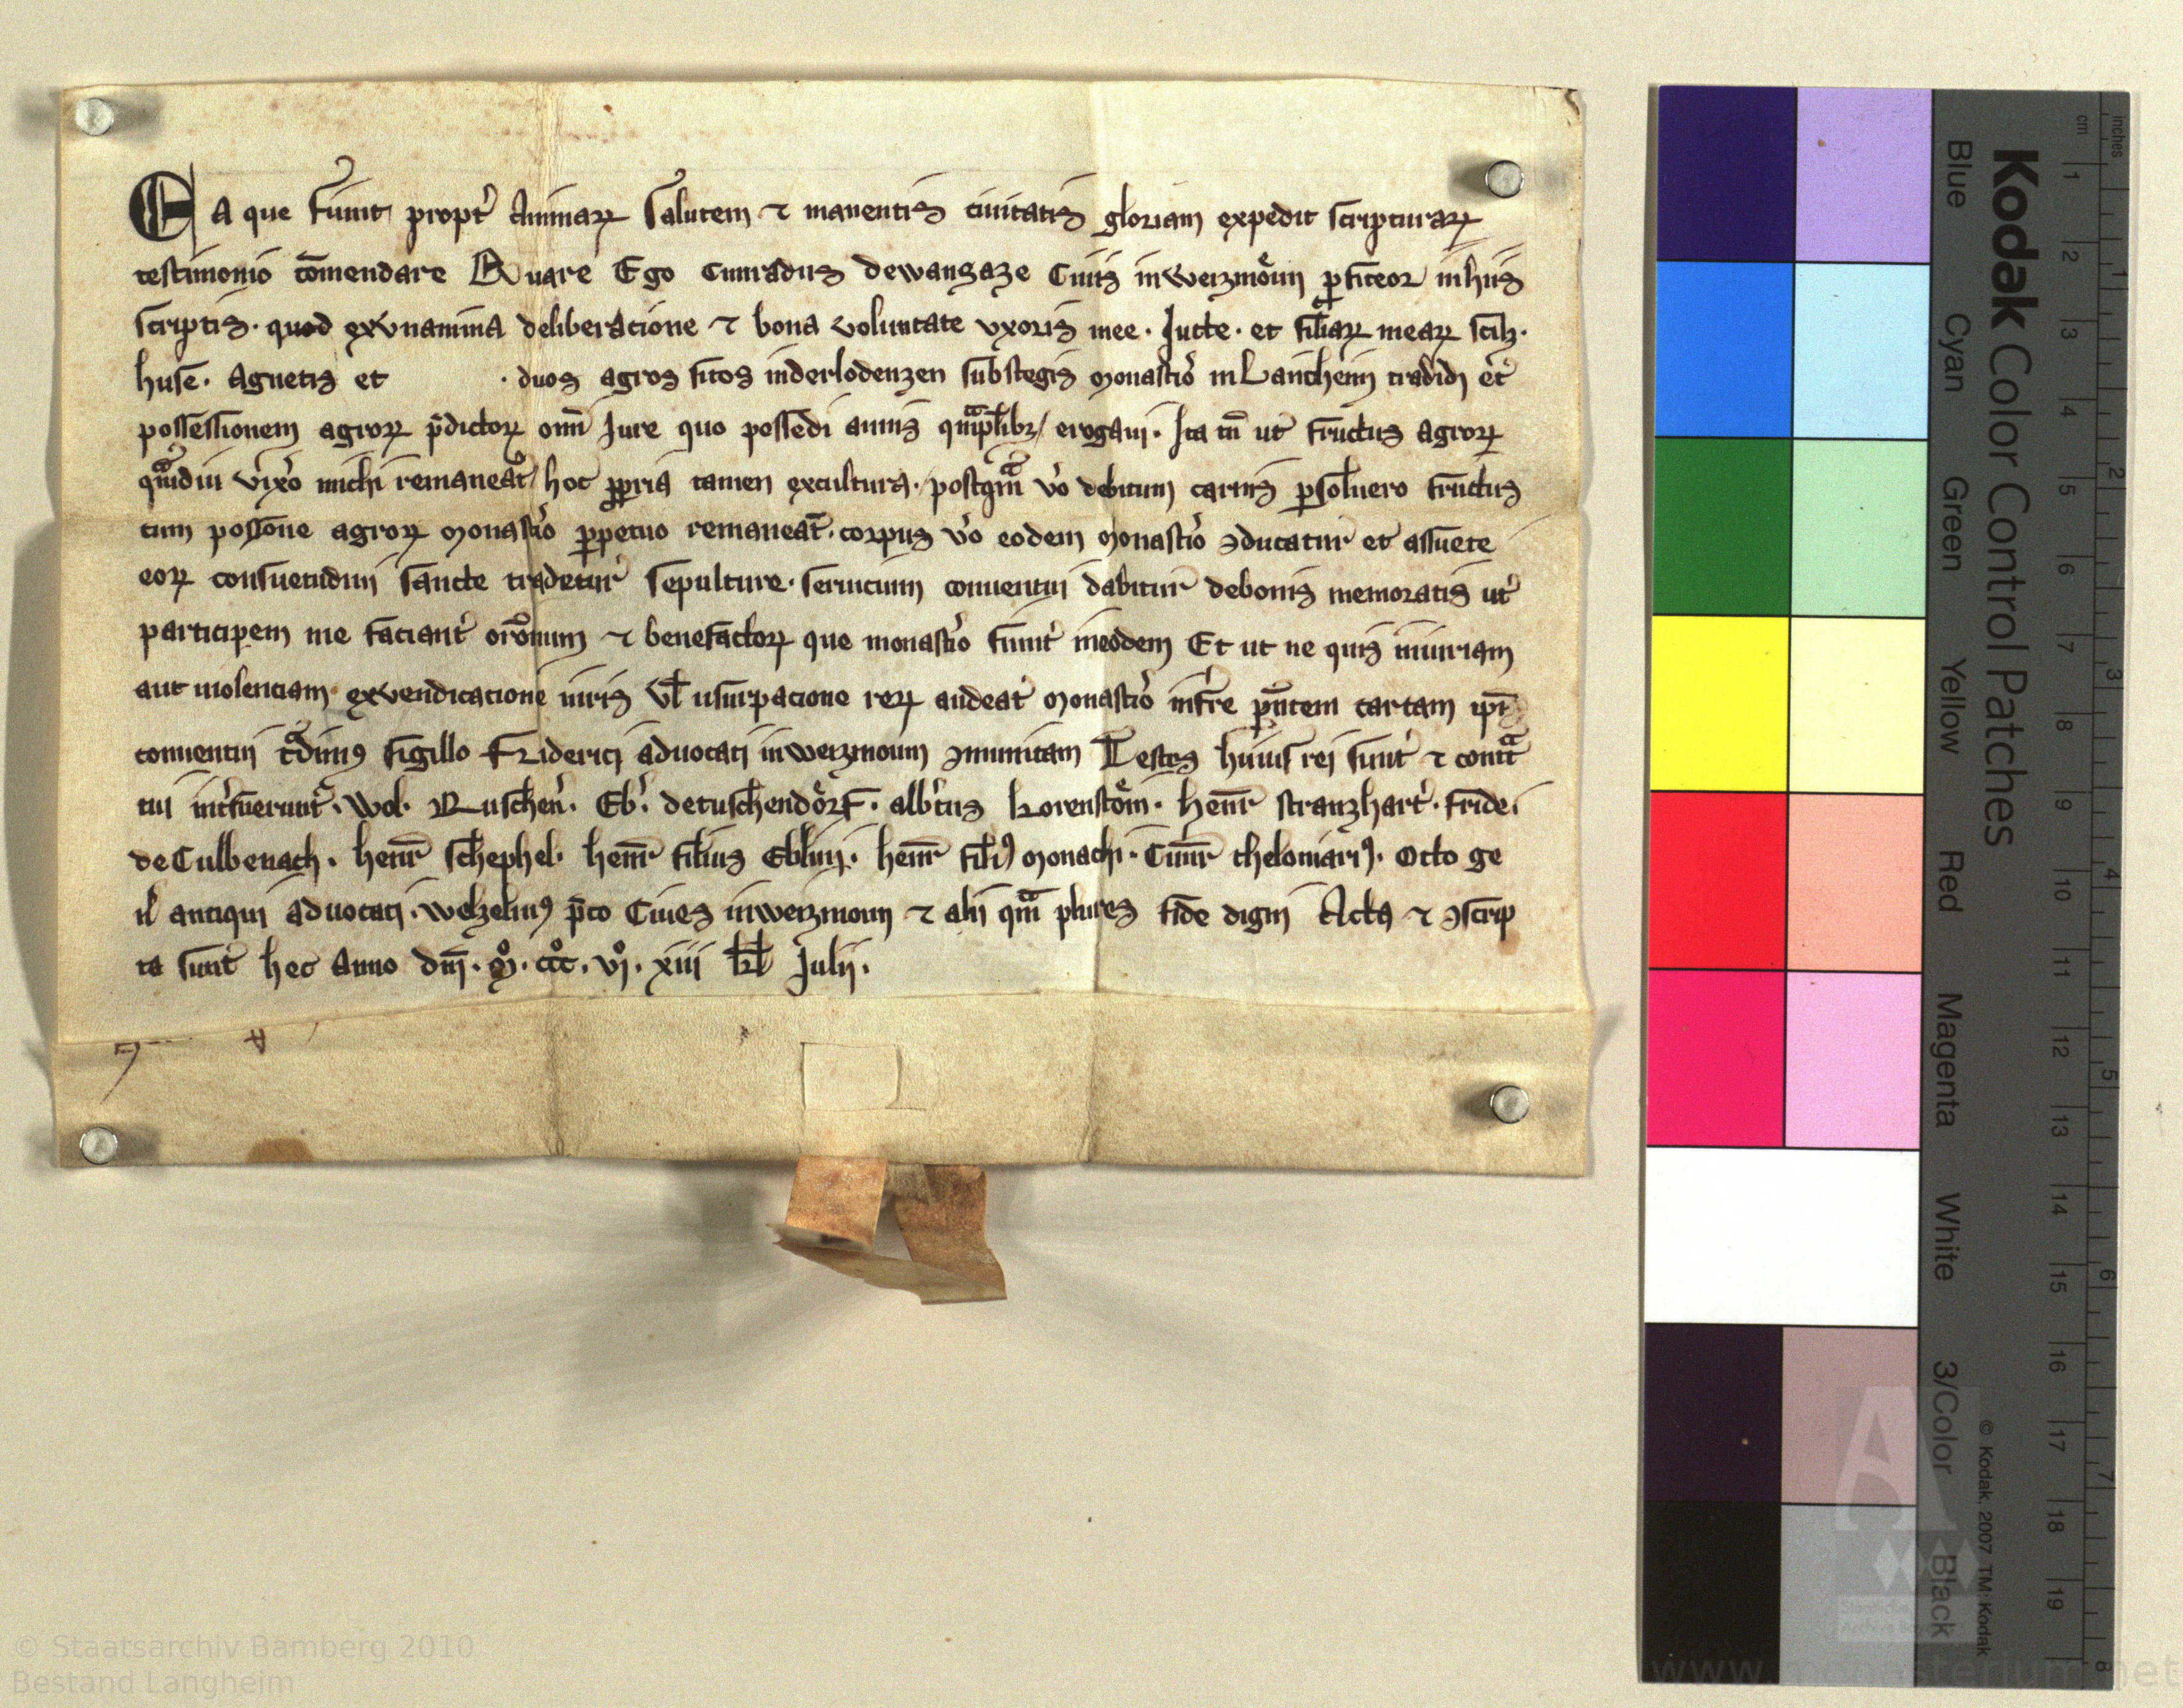 Ea que fiunt propt̛ Animaꝝ Salutem ⁊ manentis ciuitatis gloriam expedit scripturaꝝ
testimonio cōmendare Quare Ego Cunradus dewansaze Ciuis inweizmoͤun ꝓfiteor inhiis
scriptis · quod exvnanima deliberatione ⁊ bona voluntate vxoris mee · Jutte · et filiaꝝ meaꝝ scilꝫ ·
huse · Agnetis et · duos agros sitos inderlodenzen sub stegis monast̛io in Lancheim tradidi et̛
possessionem agroꝝ p̄dictoꝝ om̄i Jure quo possedi annis qͣmplibꝫ / erogaui · Ita tn̄ ut fructus agroꝝ
qͣmdiu vixơ michi remaneat̛ / hoc ꝓpria tamen excultura · postqͣm vơ debitum carnis ꝑsoluero fructus
cum possōne agroꝝ monast̛io ꝑpetuo remaneāt · corpus vơ eodem monast̛io ꝯducatur et assuete
eoꝝ consuetudini sancte tradetur sepulture · seruicium conuentui dabitur debonis memoratis ut̛
participem me faciant̛ orōnum ⁊ benefactoꝝ que monast̛io fiunt̛ ineodem Et ut ne quis iniuriam
aut uiolenciam exvendicatione iuris vl̄ usurpacione reꝝ audeat̛ monast̛io infr̛re p̄ntem cartam ip̄i
conuentui tͣdimꝰ sigillo Friderici aduocati inweizmoun ꝯmunitam Testes huius rei sunt̛ ⁊ contͣ
tui int̛fuerunt̛ · Wol · Ruschen̛ · Eb̛ · detuschendoͤrf · alb̛tus Korenstoͤin · Henr̄ stranzhart̛ · fride̛
deCulbenach · henr̄ schephel · henr̄ filius Eblini · henr̄ filiꝰ monachi · Cunr̄ theloniariꝰ · Otto ge
n̛l antiqui aduocati · welzelinꝰ p̄co Ciues inweizmoun ⁊ alii qͣm plures fide digni Acta ⁊ ꝯscrip
ta sunt hec Anno dn̄i · mͦ · cccͦ · vjͦ · xiii kl̄ Julii ·
Kodak Color Control Patches
Blue Cyan Green Yellow Red Magenta White 3/Color Black
© Kodak, 2007 TM: Kodak
cm 1 2 3 4 5 6 7 8 9 10 11 12 13 14 15 16 17 18 19
inches 1 2 3 4 5 6 7 8
© Staatsarchiv Bamberg 2010
Bestand Langheim
www.monasterium.net